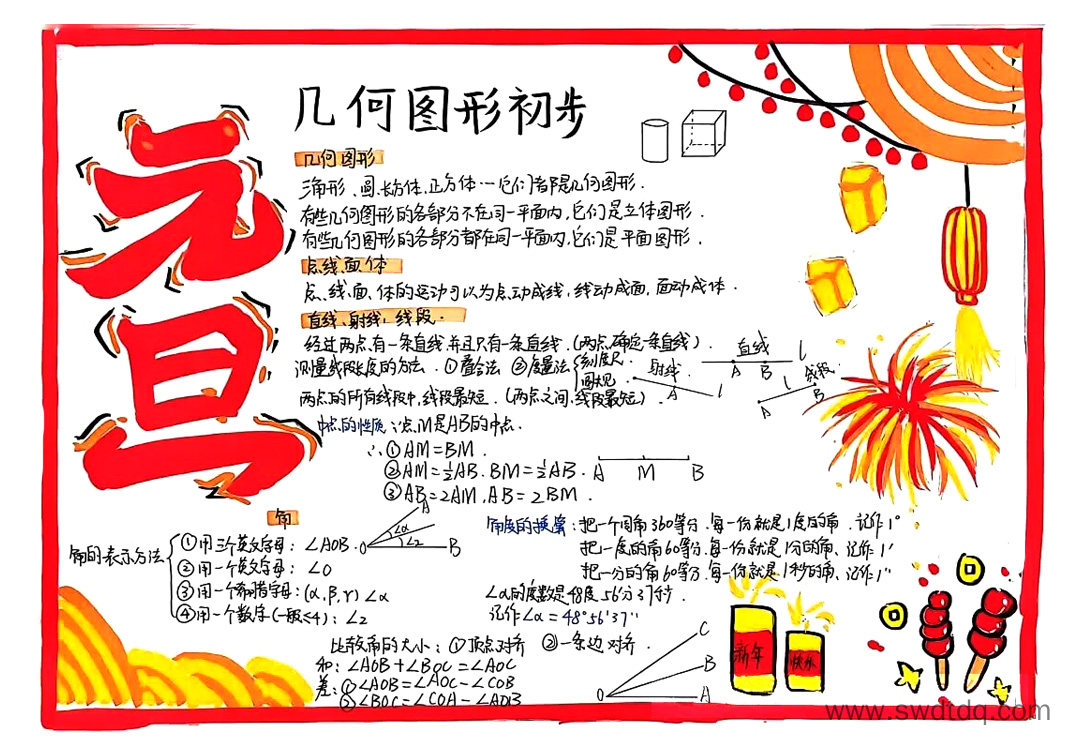 元旦
几何图形初步
几何图形
三角形、圆、长方体、正方体…它们都是几何图形.
有些几何图形的各部分不在同一平面内,它们是立体图形.
有些几何图形的各部分都在同一平面内,它们是平面图形.
点线面体
点、线、面、体的运动可以为点动成线,线动成面,面动成体.
直线、射线、线段.
经过两点有一条直线,并且只有一条直线.(两点确定一条直线).
测量线段长度的方法.①叠合法 ②度量法
刻度尺
圆规
射线
l
直线
A B l
线段
A l B
两点的所有线段中,线段最短.(两点之间,线段最短).
中点的性质:点M是AB的中点.
∴①AM=BM.
②AM=½AB.BM=½AB.
③AB=2AM.AB=2BM.
A M B
角
角的表示方法
①用三个英文字母:∠AOB.
②用一个英文字母:∠O
③用一个希腊字母:(α,β,γ)∠α
④用一个数字(一般≤4):∠2
A
∠α
∠2
O B
角度的换算:把一个周角360等分.每一份就是1度的角.记作1°
把一度的角60等分.每一份就是1分的角、记作1'
把一分的角60等分.每一份就是1秒的角、记作1"
∠α的度数是48度56分37秒.
记作∠α=48°56'37"
比较角的大小:①顶点对齐 ②一条边对齐.
和:∠AOB+∠BOC=∠AOC
差:①∠AOB=∠AOC-∠COB
②∠BOC=∠COA-∠AOB
C
B
O A
新年
快乐
www.swdtdq.com